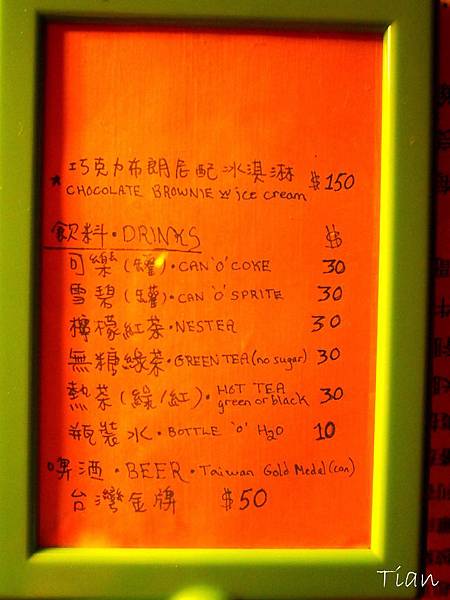 ★ 巧克力布朗尼配冰淇淋 $150
CHOCOLATE BROWNIE w ice cream
飲料·DRINKS $
可樂(罐)·CAN 'O' COKE 30
雪碧(罐)·CAN 'O' SPRITE 30
檸檬紅茶·NESTEA 30
無糖綠茶·GREEN TEA (no sugar) 30
熱茶(綠/紅)·HOT TEA green or black 30
瓶裝水·BOTTLE 'O' H2O 10
啤酒·BEER·Taiwan Gold Medal (can)
台灣金牌 $50
Tian